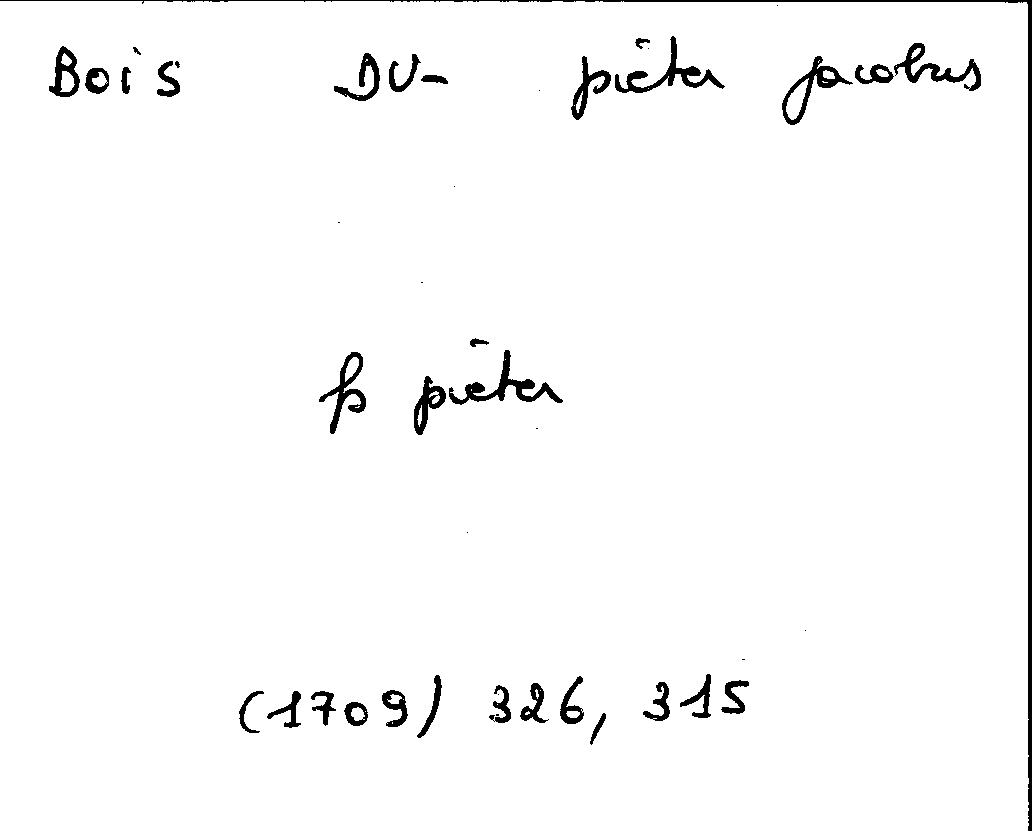 Bois DU- pieter jacobus
fs pieter
(1709) 326, 315